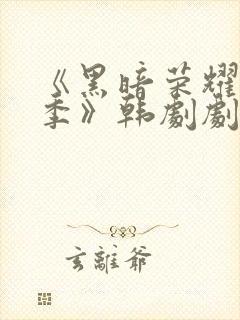 《黑暗荣耀
季》韩剧剧
玄離爷